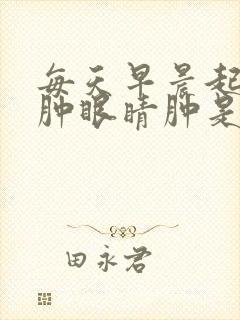 每天早晨起
肿眼睛肿是
田永君